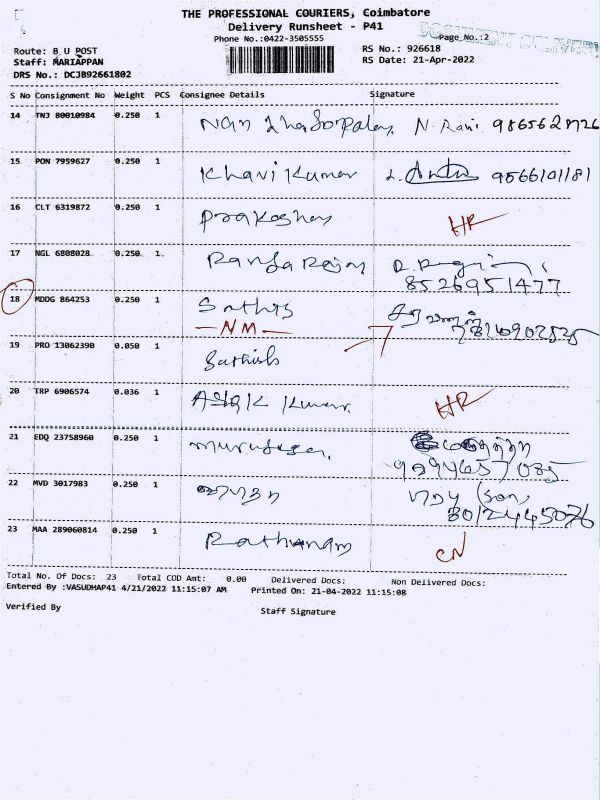 THE PROFESSIONAL COURIERS, Coimbatore
Delivery Runsheet - P41
Phone No.:0422-3505555
Page No.:2
Route: B U POST
RS No.: 926618
Staff: MARIAPPAN
RS Date: 21-Apr-2022
DRS No.: DCJB92661802
S No Consignment No Weight PCS Consignee Details Signature
14 TNJ 80010984 0.250 1 N. Rani
15 PON 7959627 0.250 1 Khavi Kumar 9566101181
16 CLT 6319872 0.250 1 HR
17 NGL 6808028 0.250 1 Ranga Rajan
8526951477
18 MDDG 864253 0.250 1 Sathis
- NM -
19 PRO 13062390 0.050 1 Sathish
20 TRP 6906574 0.036 1 Kumar HR
21 EDQ 23758960 0.250 1
22 MVD 3017983 0.250 1 (son)
8012445076
23 MAA 289060814 0.250 1 Rathanam CN
Total No. Of Docs: 23 Total COD Amt: 0.00 Delivered Docs: Non Delivered Docs:
Entered By :VASUDHAP41 4/21/2022 11:15:07 AM Printed On: 21-04-2022 11:15:08
Verified By
Staff Signature